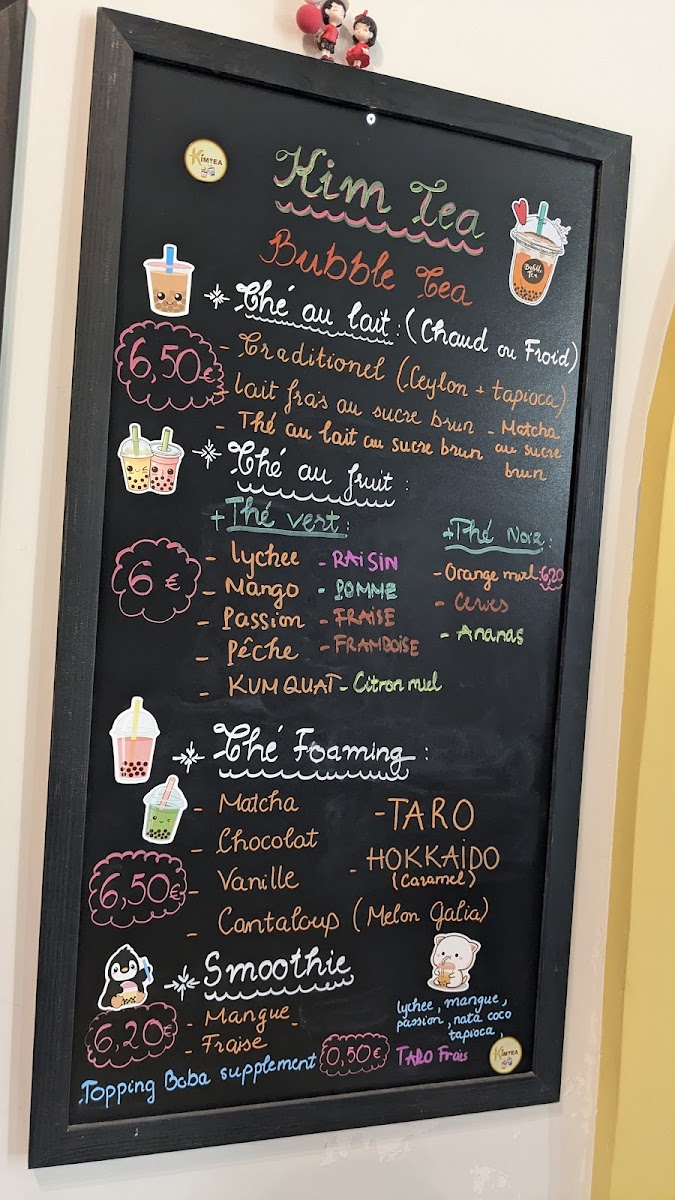 KIMTEA
Kim Tea
Bubble Tea
Bubble Tea
Thé au lait : (Chaud ou Froid)
6,50€
- Traditionel (Ceylon + tapioca)
- lait frais au sucre brun
- Thé au lait au sucre brun
- Matcha
au sucre
brun
Thé au fruit :
6 €
+ Thé vert :
- lychee
- Mango
- Passion
- Pêche
- KUMQUAT
- RAISIN
- POMME
- FRAISE
- FRAMBOISE
- Citron miel
+ Thé Noir :
- Orange miel : 6,20
- Cerises
- Ananas
Thé Foaming :
6,50€
- Matcha
- Chocolat
- Vanille
- Cantaloup (Melon Galia)
- TARO
- HOKKAIDO
(Caramel)
Smoothie
6,20€
- Mangue -
- Fraise
lychee, mangue,
passion, nata coco
tapioca,
Topping Boba supplement 0,50€ TARO Frais
KIMTEA